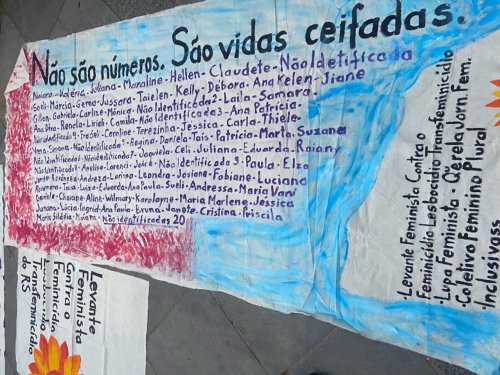 Não são números. São vidas ceifadas.
Naiara - Valéria - Juliana - Maraline - Hellen - Claudete - Não Idetificada
Márcia - Gema - Jussara - Taielen - Kelly - Débora - Ana Kelen - Jiane
Gillen - Gabriela - Carlise - Mônica - Não Identificada 2 - Laila - Samara
Ana Dha - Renata - Lirieli - Camila - Não Identificada 3 - Ana Patrícia
Caroline - Terezinha - Jéssica - Carla - Thiele
Simone - Regina - Daniela - Tais - Patrícia - Marta - Suzana
Jaquiela - Celi - Juliana - Eduarda - Raiany
Lorença - Joice - Não Identificada 9 - Paula - Elza
Rosângela - Andreza - Larissa - Leandra - Josiane - Fabiane - Luciana
Taís - Luiza - Eduarda - Ana Paula - Sueli - Andressa - Maria Vani
Gabriela - Chaiane - Aline - Wilmary - Karolayne - Maria Marlene - Jéssica
Juliana - Lúcia - Ingrid - Ana Paula - Bruna - Janete - Cristina - Priscila
Maria - Naiara - Não identificadas 20
• Levante Feminista Contra o
Feminicídio Lesbocídio Transfeminicídio
• Lupa Feminista - Q'erela Jorn. Fem.
• Coletivo Feminino Plural
• Inclusivass
Levante
Feminista
Contra o
Feminicídio
Lesbocídio
Transfeminicídio
do RS